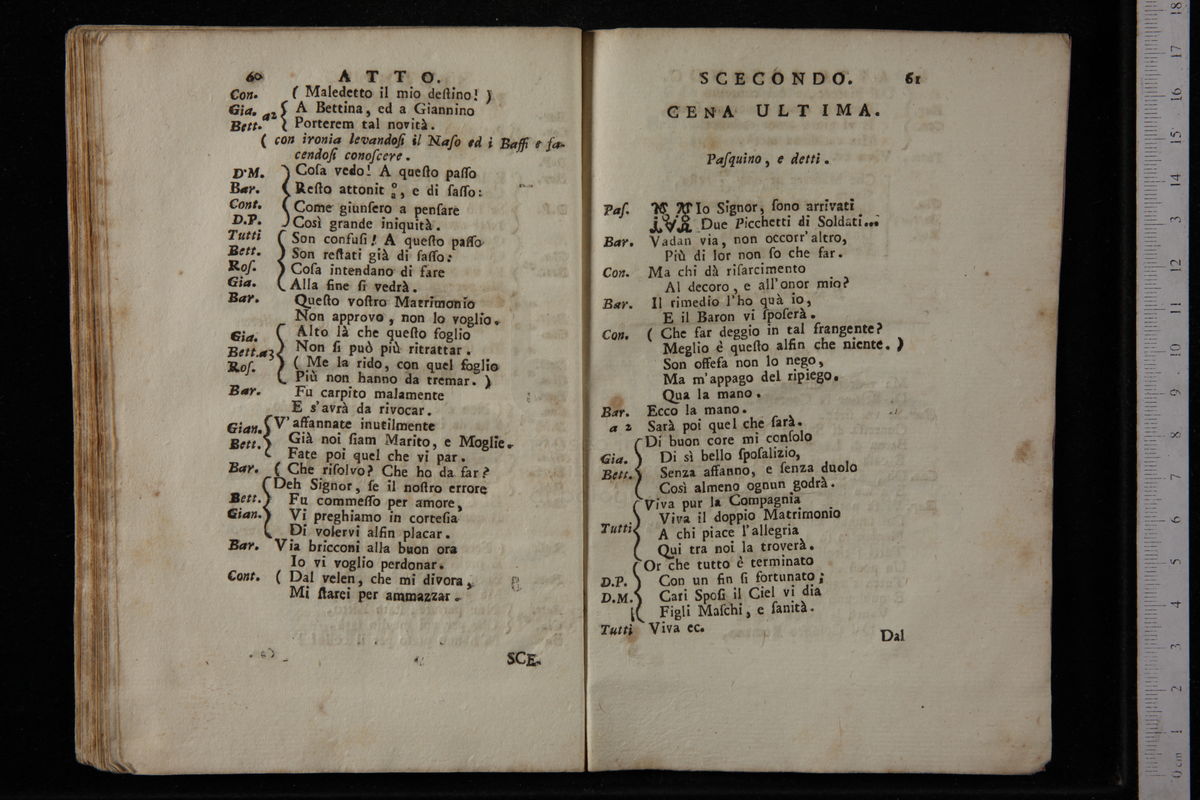 60 ATTO.
Con. ( Maledetto il mio deſtino! )
Gia. a2 { A Bettina, ed a Giannino
Bett. { Porterem tal novità.
( con ironia levandoſi il Naſo ed i Baffi e fa-
cendoſi conoſcere.
D.M. Coſa vedo! A queſto paſſo
Bar. Reſto attonit o/a, e di ſaſſo:
Cont. Come giunſero a penſare
D.P. Così grande iniquità.
Tutti Son confuſi! A queſto paſſo
Bett. Son reſtati già di ſaſſo:
Roſ. Coſa intendano di fare
Gia. Alla fine ſi vedrà.
Bar. Queſto voſtro Matrimonio
Non approvo, non lo voglio.
Gia. Alto là che queſto foglio
Bett. a3 Non ſi può più ritrattar.
Roſ. ( Me la rido, con quel foglio
Più non hanno da tremar. )
Bar. Fu carpito malamente
E s'avrà da rivocar.
Gian. V'affannate inutilmente
Bett. Già noi ſiam Marito, e Moglie.
Fate poi quel che vi par.
Bar. ( Che riſolvo? Che ho da far?
Deh Signor, ſe il noſtro errore
Bett. Fu commeſſo per amore,
Gian. Vi preghiamo in corteſia
Di volervi alfin placar.
Bar. Via bricconi alla buon ora
Io vi voglio perdonar.
Cont. ( Dal velen, che mi divora,
Mi ſtarei per ammazzar.
SCE-
SCECONDO. 61
CENA ULTIMA.
Paſquino, e detti.
Paſ. Io Signor, ſono arrivati
Due Picchetti di Soldati...
Bar. Vadan via, non occorr'altro,
Più di lor non ſo che far.
Con. Ma chi dà riſarcimento
Al decoro, e all'onor mio?
Bar. Il rimedio l'ho quà io,
E il Baron vi ſpoſerà.
Con. ( Che far deggio in tal frangente?
Meglio è queſto alfin che niente. )
Son offeſa non lo nego,
Ma m'appago del ripiego.
Qua la mano.
Bar. Ecco la mano.
a 2 Sarà poi quel che ſarà.
Di buon core mi conſolo
Gia. Di sì bello ſpoſalizio,
Bett. Senza affanno, e ſenza duolo
Così almeno ognun godrà.
Viva pur la Compagnia
Viva il doppio Matrimonio
Tutti A chi piace l'allegria
Qui tra noi la troverà.
Or che tutto è terminato
D.P. Con un fin ſi fortunato;
D.M. Cari Spoſi il Ciel vi dia
Figli Maſchi, e ſanità.
Tutti Viva ec.
Dal
18
17
16
15
14
13
12
11
10
9
8
7
6
5
4
3
2
1
0 cm